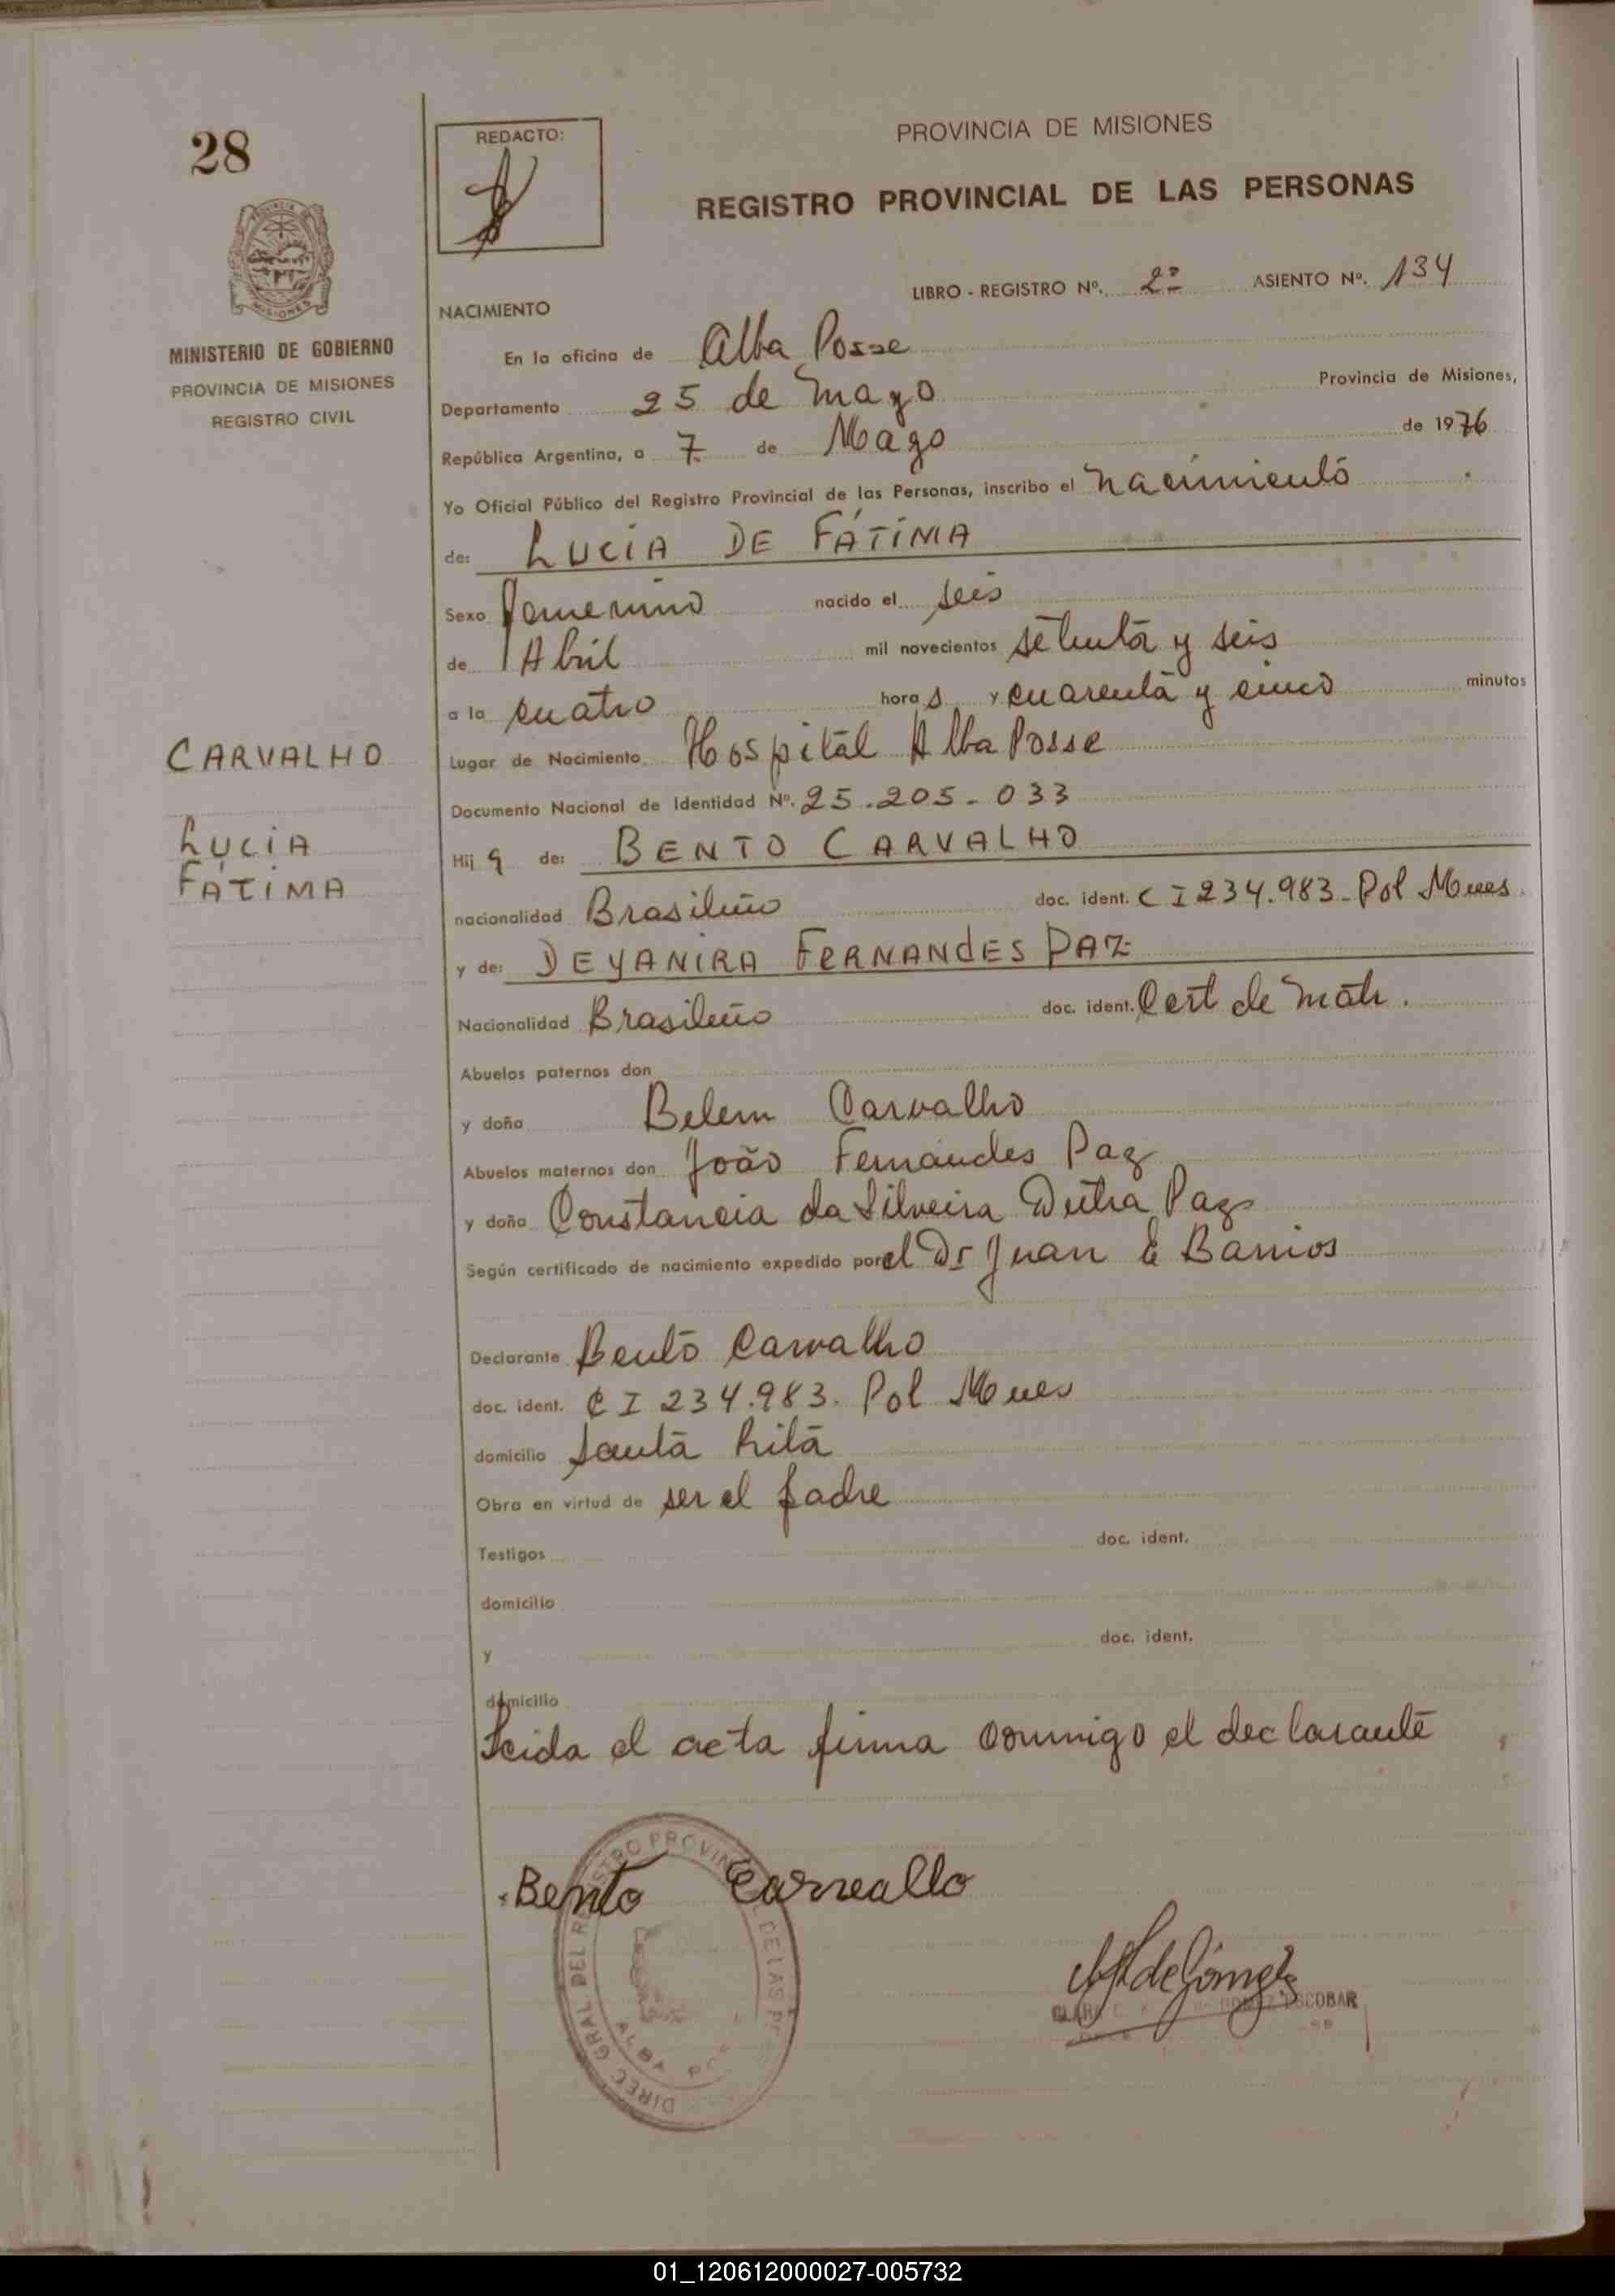 28
REDACTO:
PROVINCIA DE MISIONES
REGISTRO PROVINCIAL DE LAS PERSONAS
MINISTERIO DE GOBIERNO
PROVINCIA DE MISIONES
REGISTRO CIVIL
LIBRO - REGISTRO Nº. 2º ASIENTO Nº. 134
NACIMIENTO
En la oficina de Alba Posse
Departamento 25 de Mayo Provincia de Misiones,
República Argentina, a 7 de Mayo de 1976
Yo Oficial Público del Registro Provincial de las Personas, inscribo el nacimiento
de: LUCIA DE FÁTIMA
Sexo Femenino nacido el seis
de Abril mil novecientos setenta y seis
a la cuatro horas y cuarenta y cinco minutos
CARVALHO
LUCIA
FÁTIMA
Lugar de Nacimiento Hospital Alba Posse
Documento Nacional de Identidad Nº. 25.205-033
Hija de: BENTO CARVALHO
nacionalidad Brasileño doc. ident. C I 234.983-Pol Mnes.
y de: DEYANIRA FERNANDES PAZ
Nacionalidad Brasileño doc. ident. Cert de Matr.
Abuelos paternos don
y doña Belem Carvalho
Abuelos maternos don João Fernandes Paz
y doña Constancia da Silveira Dutra Paz
Según certificado de nacimiento expedido por el Dr Juan E Barrios
Declarante Bento Carvalho
doc. ident. C I 234.983. Pol Mnes
domicilio Santa Rita
Obra en virtud de ser el padre
Testigos doc. ident.
domicilio
y doc. ident.
domicilio
Leida el acta firma conmigo el declarante
Bento Carvallo
DIREC GRAL. DEL REGISTRO PROVINCIAL DE LAS
ALBA
de Gómez
GOMEZ ESCOBAR
01_120612000027-005732